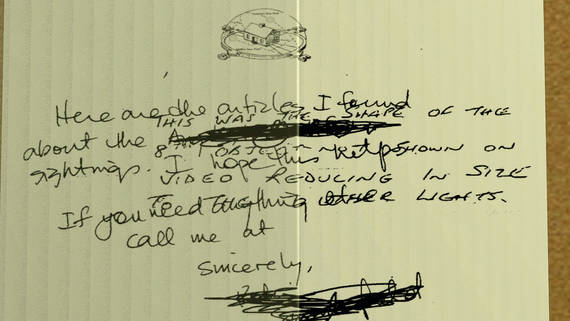 Here are the articles I found
THIS WAS THE SHAPE OF THE
about the
OBJECT SHOWN ON
sightings. I hope this helps
VIDEO REDUCING IN SIZE
If you need anything else
TO THE OTHER LIGHTS.
call me at
sincerely,